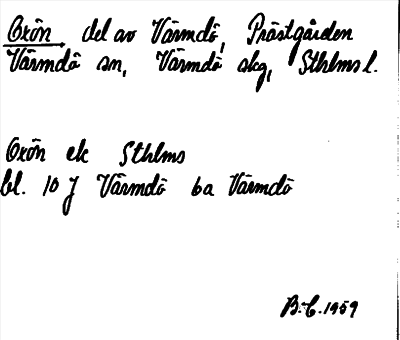 Oxön del av Värmdö, Prästgården
Värmdö sn, Värmdö skg, Sthlms l.
Oxön ek Sthlms
bl. 10 J Värmdö ba Värmdö
B.C. 1959